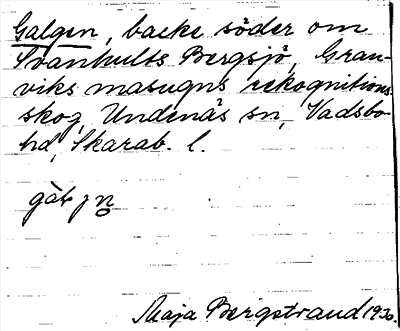 Galgen, backe söder om
Svanhults Bergsjö, Gran-
viks masugns rekognitions
skog, Undenäs sn, Vadsbo
hd, Skarab. l.
Maja Bergstrand 1930.